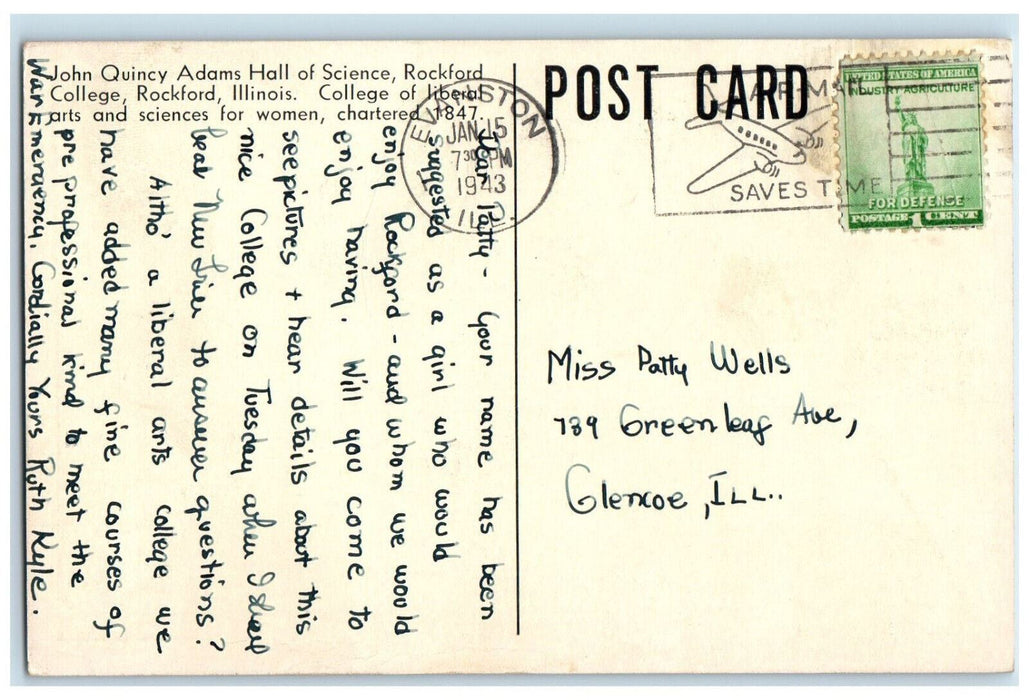 John Quincy Adams Hall of Science, Rockford
College, Rockford, Illinois. College of liberal
arts and sciences for women, chartered 1847.
POST CARD
EVANSTON
JAN 15
7 30 PM
1943
ILL.
AIR MAIL
SAVES TIME
UNITED STATES OF AMERICA
INDUSTRY AGRICULTURE
FOR DEFENSE
POSTAGE 1 CENT
Dear Patty - Your name has been
suggested as a girl who would
enjoy Rockford - and whom we would
enjoy having. Will you come to
see pictures + hear details about this
nice College on Tuesday when I shall
be at New Trier to answer questions?
Altho' a liberal arts college we
have added many fine courses of
pre professional kind to meet the
War Emergency. Cordially Yours Ruth Kyle.
Miss Patty Wells
789 Greenleaf Ave,
Glencoe, ILL..